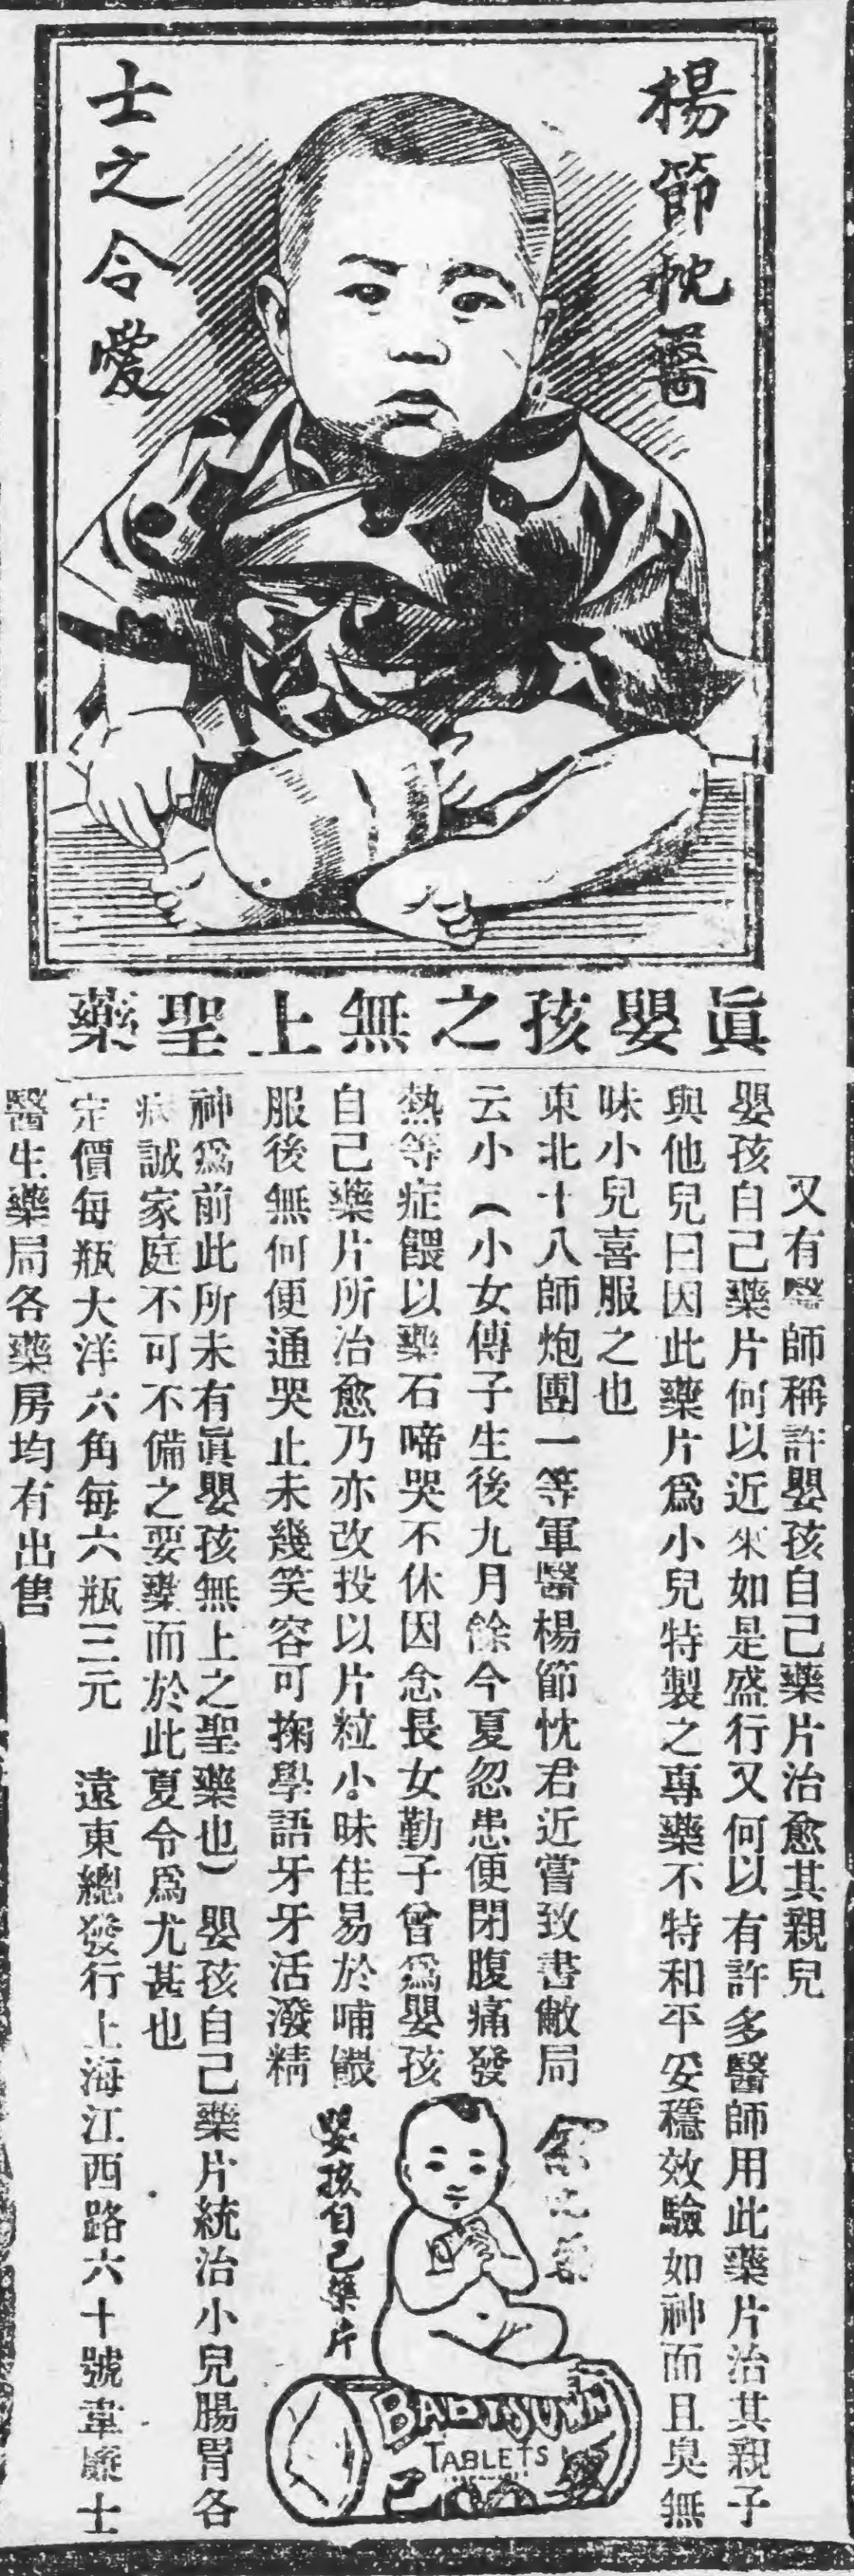 楊節忱醫
士之令愛
眞嬰孩之無上聖藥
又有醫師稱許嬰孩自己藥片治愈其親兒
嬰孩自己藥片何以近來如是盛行又何以有許多醫師用此藥片治其親子
與他兒曰因此藥片爲小兒特製之專藥不特和平妥穩效驗如神而且臭無
味小兒喜服之也
東北十八師炮團一等軍醫楊節忱君近嘗致書敝局
云小（小女傳子生後九月餘今夏忽患便閉腹痛發
熱等症餵以藥石啼哭不休因念長女勤子曾爲嬰孩
自己藥片所治愈乃亦改投以片粒小味佳易於哺餵
服後無何便通哭止未幾笑容可掬學語牙牙活潑精
神爲前此所未有眞嬰孩無上之聖藥也）嬰孩自己藥片統治小兒腸胃各
病誠家庭不可不備之要藥而於此夏令爲尤甚也
定價每瓶大洋六角每六瓶三元　遠東總發行上海江西路六十號韋廉士
醫生藥局各藥房均有出售
嬰孩自己藥片
BABY'S OWN
TABLETS